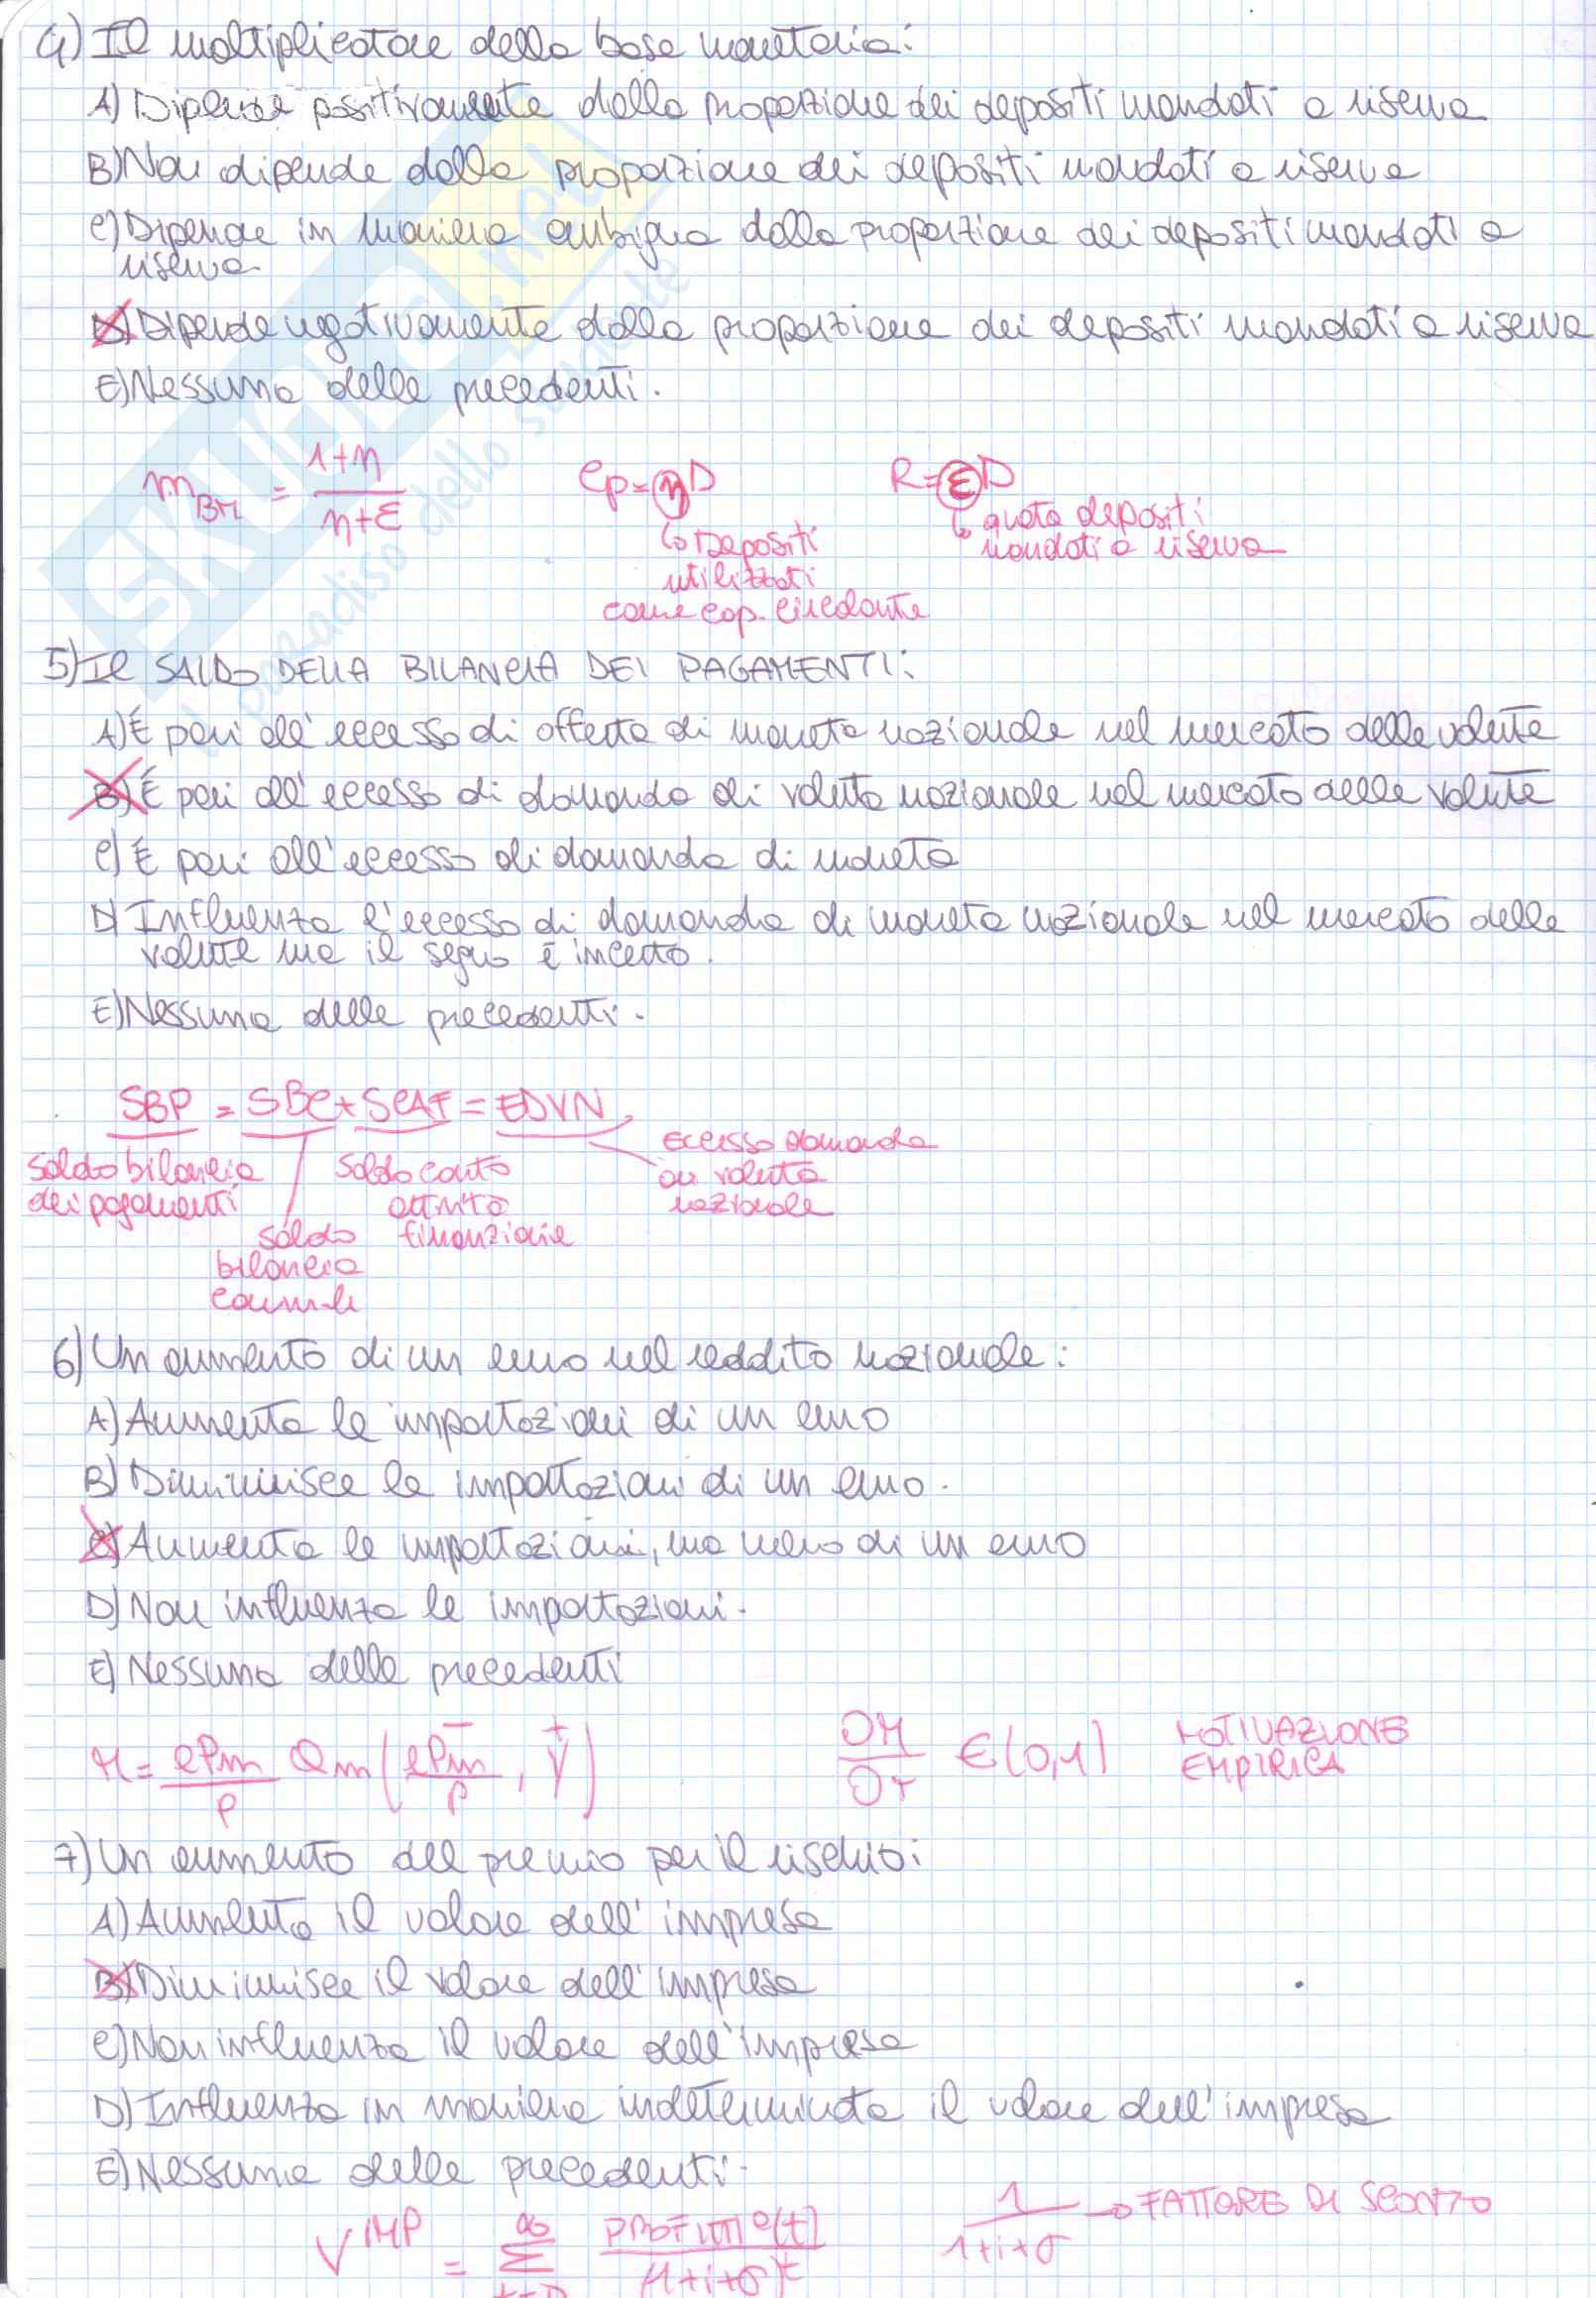 4) Il moltiplicatore della base monetaria:
A) Dipende positivamente dalla proporzione dei depositi mandati a riserva
B) Non dipende dalla proporzione dei depositi mandati a riserva
C) Dipende in maniera ambigua dalla proporzione dei depositi mandati a
riserva.
D) Dipende negativamente dalla proporzione dei depositi mandati a riserva
E) Nessuna delle precedenti.
m_BM = (1+η)/(η+ε)   Cp = ηD   R = εD
↳ Depositi utilizzati come cap. circolante
↳ quota depositi mandati a riserva
5) Il SALDO DELLA BILANCIA DEI PAGAMENTI:
A) É pari all'eccesso di offerta di moneta nazionale nel mercato delle valute
B) É pari all'eccesso di domanda di valuta nazionale nel mercato delle valute
C) É pari all'eccesso di domanda di moneta
D) Influenza l'eccesso di domanda di moneta nazionale nel mercato delle
valute ma il segno é incerto.
E) Nessuna delle precedenti.
SBP = SBC + SCAF = EDVN
saldo bilancia dei pagamenti
saldo bilancia comm.le
saldo conto attività finanziarie
eccesso domanda di valuta nazionale
6) Un aumento di un euro nel reddito nazionale:
A) Aumenta le importazioni di un euro
B) Diminuisce le importazioni di un euro.
C) Aumenta le importazioni, ma meno di un euro
D) Non influenza le importazioni.
E) Nessuna delle precedenti
M = ePm/P Qm (ePm/P, Y)   - +
∂M/∂Y ∈ (0,1)   MOTIVAZIONE EMPIRICA
7) Un aumento del premio per il rischio:
A) Aumenta il valore dell'impresa
B) Diminuisce il valore dell'impresa
C) Non influenza il valore dell'impresa
D) Influenza in maniera indeterminata il valore dell'impresa
E) Nessuna delle precedenti.
V^IMP = Σ ∞ PROFITTI^e(t)/(1+i+σ)^t   1/(1+i+σ) → FATTORE DI SCONTO
SKUOLA.net
il paradiso dello studente